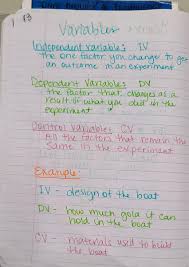 13
Variables
Independent Variable: IV
the one factor you change to get
an outcome in an experiment
Dependent Variable: DV
the factor that changes as a
result of what you did in the
experiment
Control Variable: CV -
All the factors that remain the
same in the experiment
Example:
IV - design of the boat
DV - how much gold it can
hold in the boat
CV - materials used to build
the boat